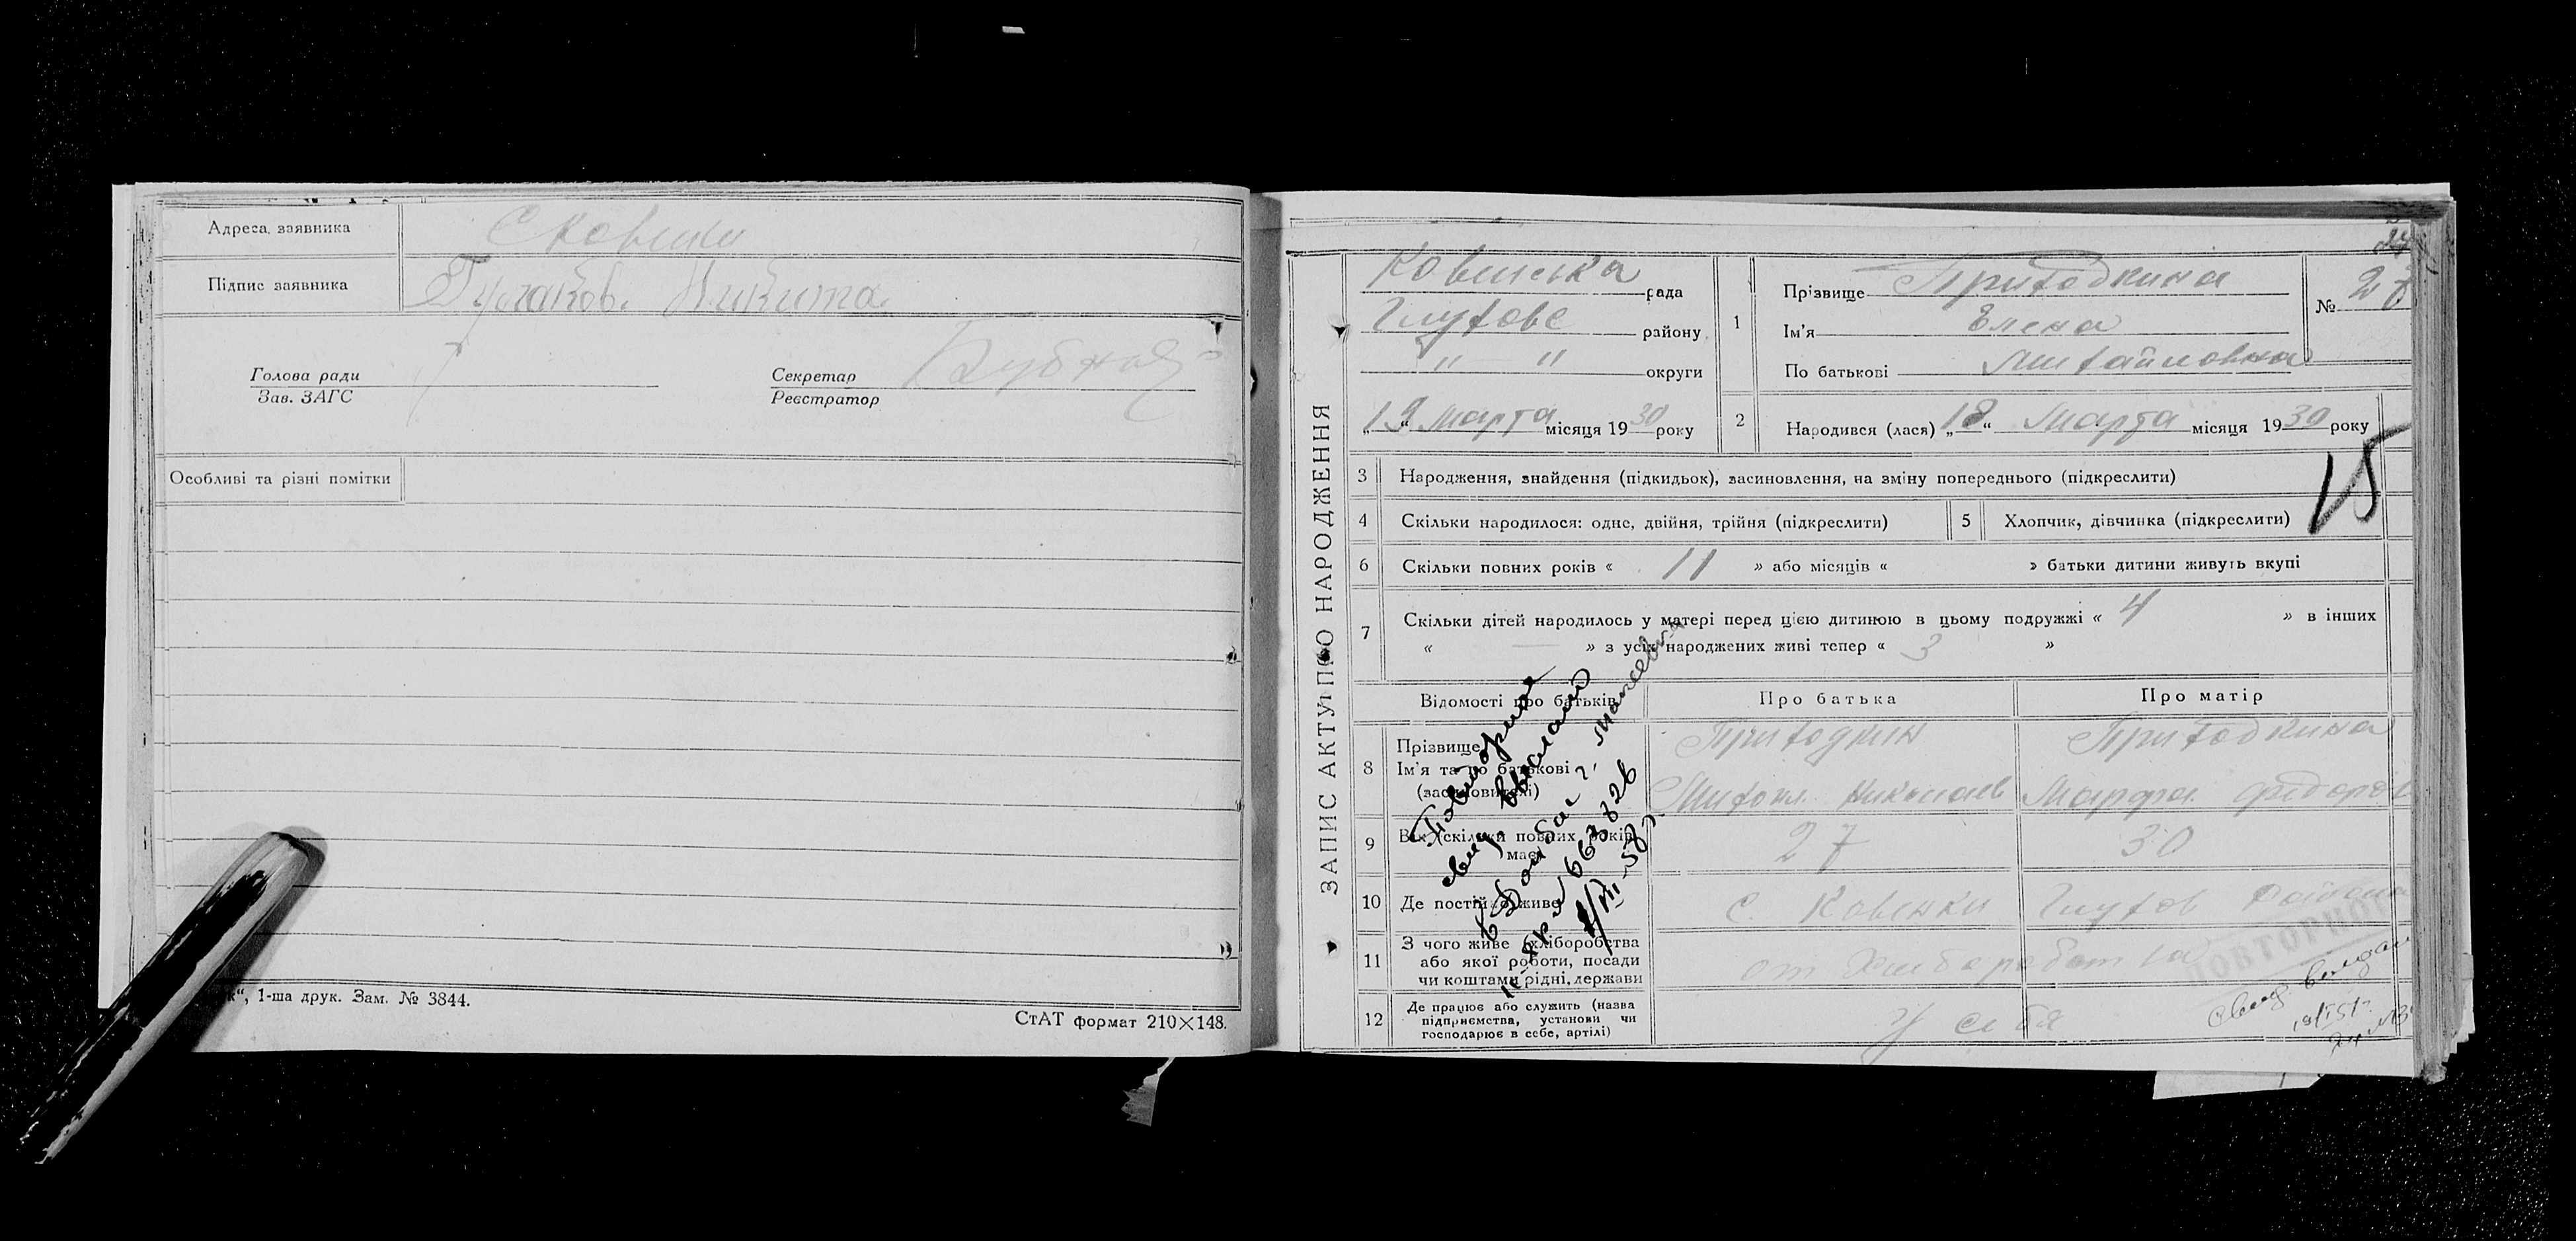 Адреса заявника
С Ковенки
Підпис заявника
Гулаков Никита
Голова ради
Зав. ЗАГС
Секретар
Реєстратор
Особливі та різні помітки
1-ша друк. Зам. № 3844.
СтАТ формат 210×148.
ЗАПИС АКТУ ПРО НАРОДЖЕННЯ
Ковенська рада
Глухове району
" — " округи
„19“ Марта місяця 1930 року
1
Прізвище Приходкина
Ім'я Елена
По батькові Михайловна
№ 27
2
Народився (лася) „18“ Марта місяця 1930 року
15
3 Народження, знайдення (підкидьок), засиновлення, на зміну попереднього (підкреслити)
4 Скільки народилося: одне, двійня, трійня (підкреслити)
5 Хлопчик, дівчинка (підкреслити)
6 Скільки повних років « 11 » або місяців « » батьки дитини живуть вкупі
7 Скільки дітей народилось у матері перед цією дитиною в цьому подружжі « 4 » в інших
« — » з усіх народжених живі тепер « 3 »
Відомості про батьків
Про батька
Про матір
8 Прізвище
Ім'я та по батькові
(засиновителі)
Приходкин
Приходкина
Михаил Николаев
Марфа Федоров
9 Вік (скільки повних років
має)
27
30
10 Де постійно живе
С. Ковенки Глухов района
11 З чого живе (хліборобства
або якої роботи, посади
чи коштами рідні, держави
от Хлебаработва
12 Де працює або служить (назва
підприємства, установи чи
господарює в себе, артілі)
У себя
Повторное
свид выслано
в Донбас г.
663826
ПОВТОРНОЕ
свид выдан